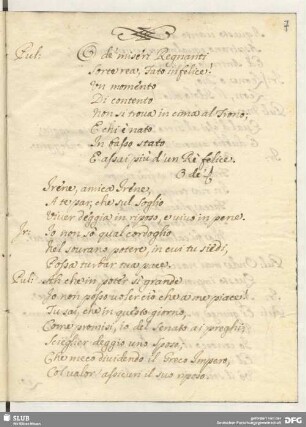 7
Pul: O de' miseri Regnanti
Sorte rea, Fato infelice!
Un momento
Di contento
Non si troua in cima al Trono;
E chi è nato
In basso stato
E assai più d'un Rè felice.
O de'
Irene, amica Irene,
A te par, che sul Soglio
Viuer deggia in riposo, e uiuo in pene.
Ir: Io non sò qual cordoglio
Nel sourano potere, in cui tu siedi,
Possa turbar tua pace.
Pul: Ah che in poter sì grande
Io non posso uoler ciò che a me piace.
Tu sai, che in questo giorno,
Come promisi, io del Senato ai preghi
Scieglier deggio uno Sposo,
Che meco diuidendo il Greco Impero,
Col valor assicuri il suo riposo.
SLUB
Wir führen Wissen.
gefördert von der
Deutschen Forschungsgemeinschaft
DFG